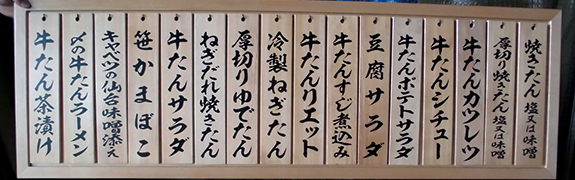 焼きたん 塩又は味噌
厚切り焼きたん 塩又は味噌
牛たんカツレツ
牛たんシチュー
牛たんポテトサラダ
豆腐サラダ
牛たんすじ煮込み
牛たんリエット
冷製ねぎたん
厚切りゆでたん
ねぎだれ焼きたん
牛たんサラダ
笹かまぼこ
キャベツの仙台味噌添え
〆の牛たんラーメン
牛たん茶漬け